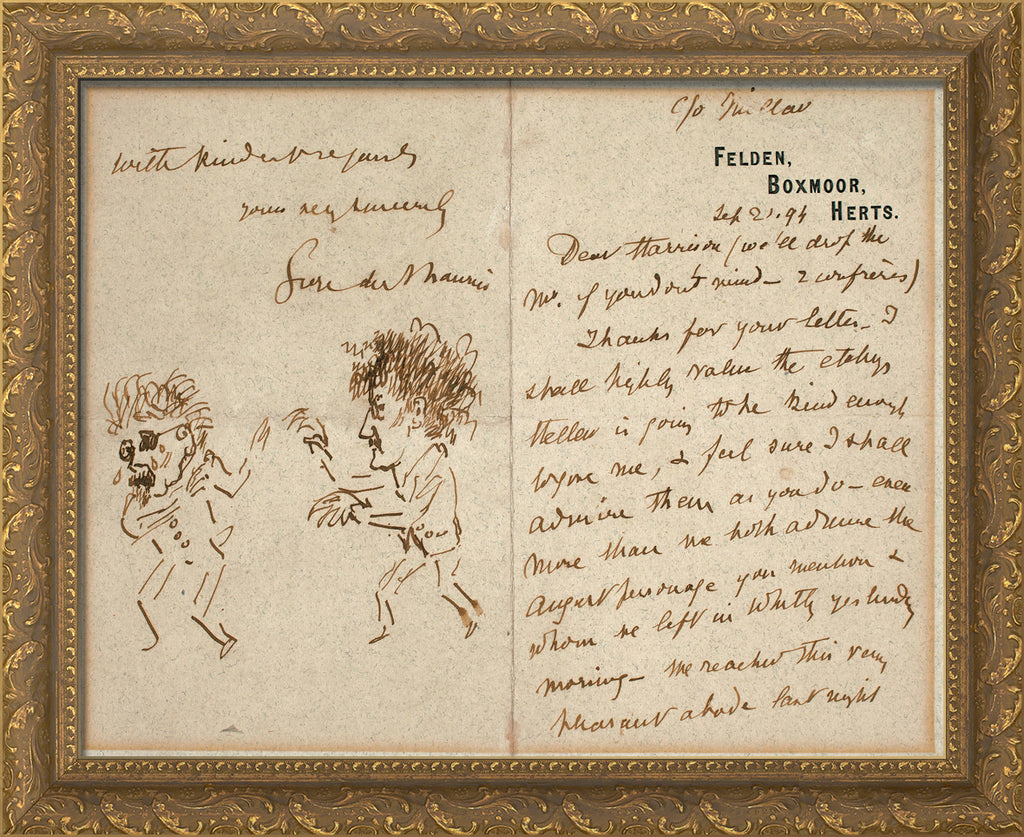 with kindest regards
yours very sincerely
George du Maurier
c/o
FELDEN,
BOXMOOR,
HERTS.
Sep 21.94
Dear Harrison (we'll drop the
Mr. if you don't mind — 2 confrères)
Thanks for your letter — I
shall highly value the etchings
Helleu is going to be kind enough
to give me, & feel sure I shall
admire them as you do — even
more than we both admire the
august personage you mention &
whom we left in Whitby yesterday
morning — We reached this very
pleasant abode last night